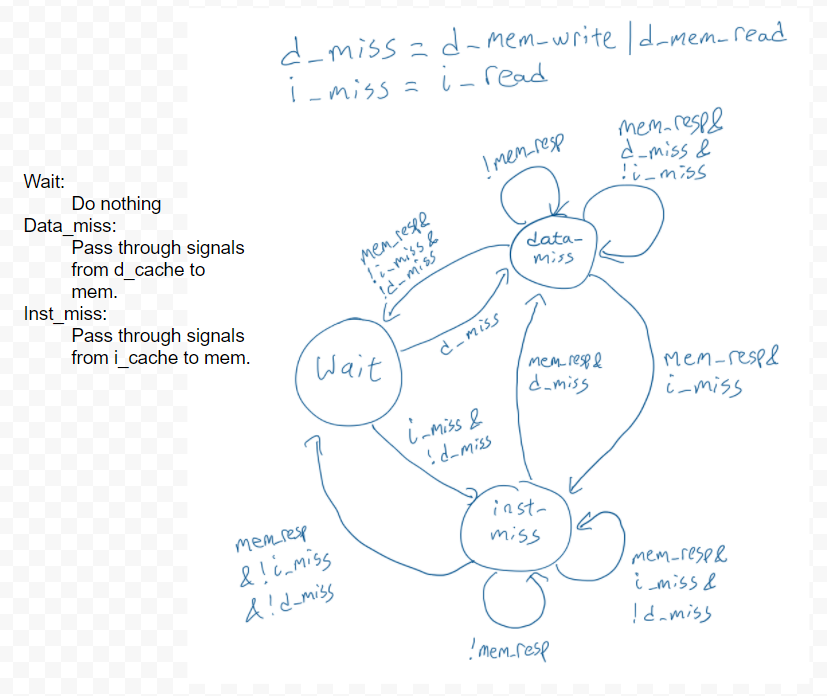 d_miss = d-mem-write | d-mem-read
i_miss = i-read
Wait:
Do nothing
Data_miss:
Pass through signals
from d_cache to
mem.
Inst_miss:
Pass through signals
from i_cache to mem.
!mem_resp
mem_resp&
d_miss &
!i-miss
mem_resp&
!i-miss &
!d-miss
data-
miss
Wait
d_miss
mem_resp&
d_miss
mem-resp&
i-miss
i_miss &
!d-miss
inst-
miss
mem_resp
& !i_miss
& !d_miss
mem_resp&
i_miss &
!d_miss
!mem_resp